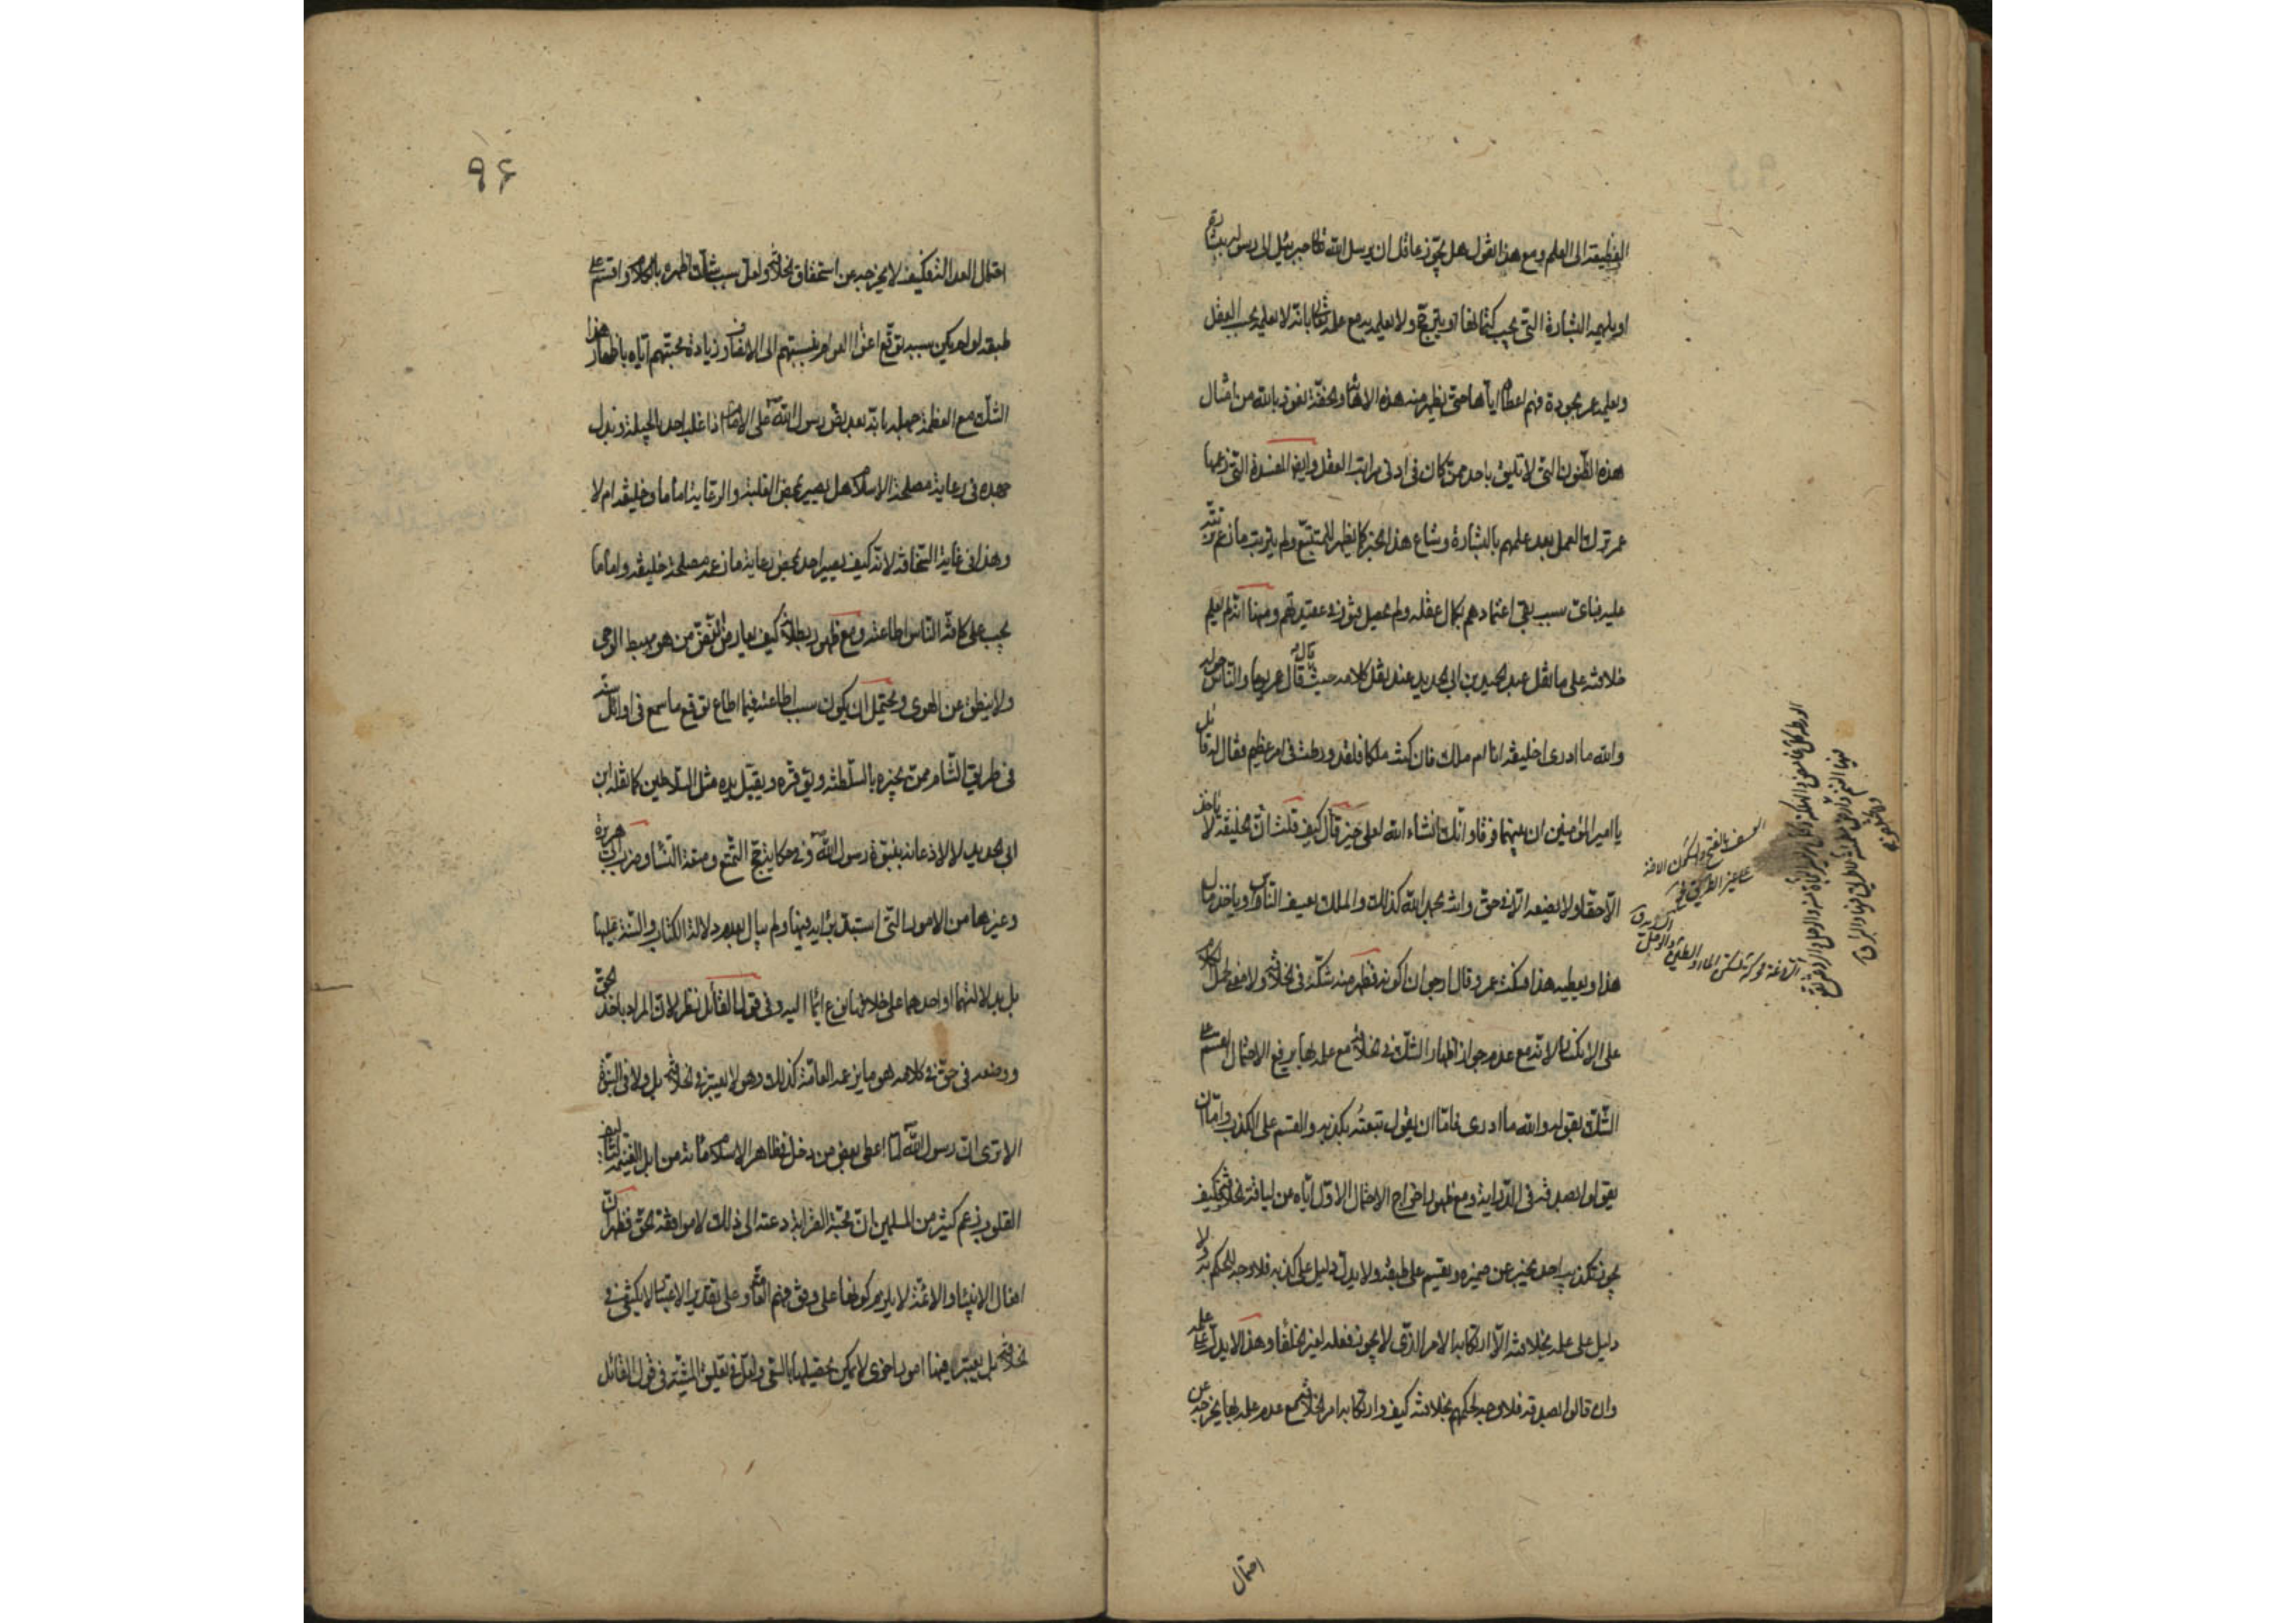 الفظيعة الى العلم ومع هذا القول هل يجوز عاقل ان يرسل الله تعالى جبرئيل الى رسوله ببشارة
او يلهمه البشارة التى يجب كتمانها او يترجح ولا يعلمه مع علمه تعالى بانه لا يعلمه بحسب العقل
ويعلمه عمر بجودة فهم اعطاه اياها حتى يظهر منه هذه الاهانة والخفة نعوذ بالله من امثال
هذه الظنون التى لا تليق باحد ممن كان فى ادنى مراتب العقل وايضا المفسدة التى زعمها
عمر ترك العمل بعد علمهم بالبشارة وشاع هذا الخبر كما يظهر للمتتبع ولم يترتب ما زعم ترتبه
عليه فباى سبب بقى اعتمادهم بكمال عقله ولم يحصل فتور فى عقيدتهم ومنها انه لم يعلم
خلافته على ما نقل عبد الحميد بن ابى الحديد عند نقل كلامه حيث قال قال عمر يوما والناس حوله
والله ما ادرى اخليفة انا ام ملك فان كنت ملكا فلقد ورطت فى امر عظيم فقال له قائل
يا امير المؤمنين ان بينهما فرقا وانك انشاء الله لعلى خير قال كيف قلت ان الخليفة لا ياخذ
الا حقا ولا يضعه الا فى حق وانت بحمد الله كذلك والملك يعسف الناس وياخذ مال
هذا ويعطيه هذا فسكت عمر وقال ارجو ان اكونه فظهر منه شكه فى الخلافة ولا معنى لحمل الكلام
على الانكسار لانه مع عدم جواز اظهار الشك فى الخلافة مع علمه بها يرفع الاحتمال القسم على
الشك بقوله والله ما ادرى فاما ان يقول تبعته بكذبه والقسم على الكذب واما ان
يقولوا بصدقه فى الدراية ومع ظهور اخراج الاحتمال الاول اياه من لياقة الخلافة كيف
يجوز تكذيب احد يخبر عن ضميره ويقسم على طبقه ولا يدل دليل على كذبه فلا وجه للحكم به ولا
دليل على علمه بخلافته الا ارتكابه الامر الذى لا يجوز فعله لغير الخلفاء وهذا لا يدل على علمه
وان قالوا بصدقه فلا وجه لحكمهم بخلافته كيف وارتكابه امر الخلافة مع عدم علمه بها يخرجه عن
احتمال
٩۶
احتمال العدالة فكيف لا يخرجه عن استحقاق الخلافة ولعل سبب شك اظهره بالكلام واقسم على
طبقه لو لم يكن سببه توقع اغترار العوام بنسبتهم الى الانصاف وزيادة محبتهم اياه باظهار هذا
الشك مع العظمة جهله بانه بعد نص رسول الله على الامام اذا غلب احد بالحيلة وبذل
جهده فى رعاية مصلحة الاسلام هل يصير بمحض الغلبة والرعاية اماما وخليفة ام لا
وهذا فى غاية السخافة لانه كيف يصير احد بمحض رعاية ما زعمه مصلحة خليفة واماما
يجب على كافة الناس اطاعته ومع ظهور بطلانه كيف يعارض نص من هو مهبط الوحى
ولا ينطق عن الهوى ويحتمل ان يكون سبب اطاعته فيما اطاع توقع ما سمع فى اوائل سنه
فى طريق الشام ممن يخبره بالسلطنة ويوقره ويقبل يده مثل السلاطين كما نقله ابن
ابى الحديد لا للاذعان بنبوة رسول الله وفى حكاية حج التمتع ومتعة النساء وضرب ابى هريرة
وغيرها من الامور التى استبد برايه فيها ولم يبال بعدم دلالة الكتاب والسنة عليها
بل بدلالتهما او احدهما على خلاف ما نزع ايماء اليه وفى قول القائل نظر لان المراد باخذ الحق
ووضعه فى حق فى كلامه هو ما يزعمه العامة كذلك وهو لا يعتبر فى الخلافة بل ولا فى النبوة
الا ترى ان رسول الله لما اعطى بعض من دخل فى ظاهر الاسلام مائة من ابل الغنيمة لتاليف
القلوب زعم كثير من المسلمين ان محبة القرابة دعته الى ذلك لا موافقة الحق فظهر ان
افعال الانبياء والائمة لا يلزم كونها على وفق فهم العامة وعلى تقدير الاعتبار لا يكتفى فى
الخلافة بل يعتبر فيها امور اخرى لا يمكن تحصيلها بالسعى ولعل فى تعليق المشية فى قول القائل